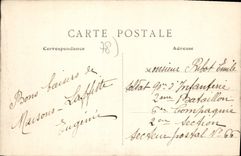 CARTE POSTALE
Correspondance
Adresse
78)
Bons baisers de
Maisons-Laffitte
Eugénie
Monsieur Robot Emile
soldat 91e d'Infanterie
Bataillon
6e Compagnie
2me Section
Secteur postal No 66